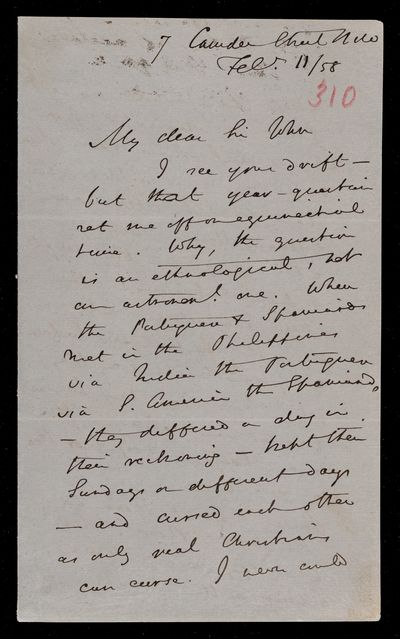 7 Camden Street N.W
Feb. 11/58
310
My dear Sir John
I see your drift —
but that year-question
set me off on equinoctial
time. Why, the question
is an ethnological, not
an astronom!. one. When
the Portuguese & Spaniards
met in the Philippines
via India the Portuguese
via S. America the Spaniards,
— they differed a day in
their reckoning — kept their
Sundays on different days
— and cursed each other
as only real Christians
can curse. I never could